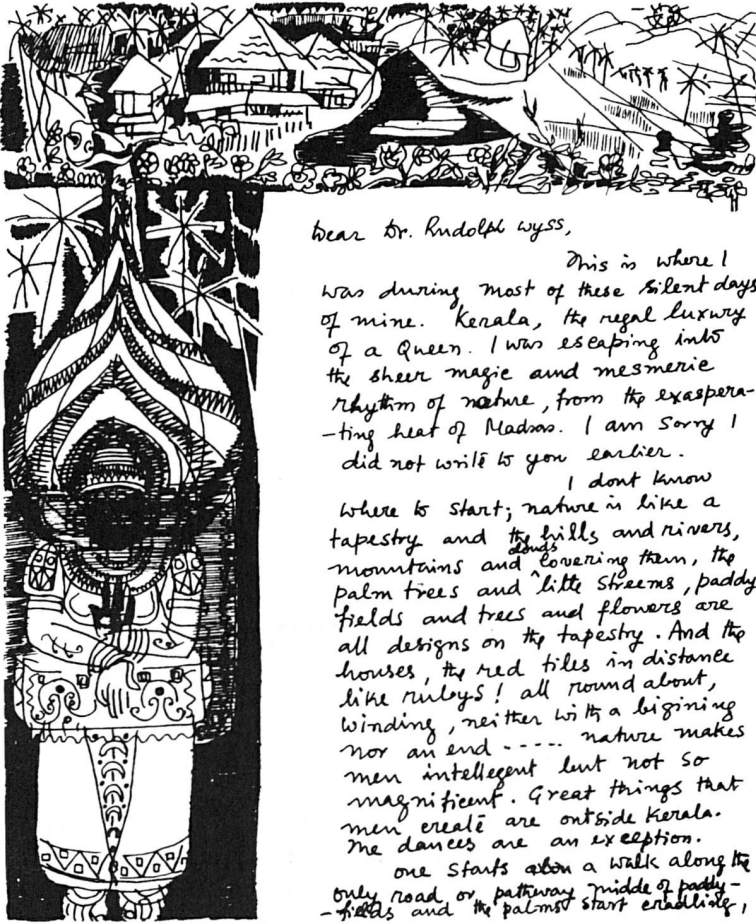 Dear Dr. Rudolph Wyss,
This is where I
was during most of these silent days
of mine. Kerala, the regal luxury
of a Queen. I was escaping into
the sheer magic and mesmeric
rhythm of nature, from the exaspera-
-ting heat of Madras. I am sorry I
did not write to you earlier.
I dont know
where to start; nature is like a
tapestry and the hills and rivers,
mountains and clouds covering them, the
palm trees and little streems, paddy
fields and trees and flowers are
all designs on the tapestry. And the
houses, the red tiles in distance
like rubys! all round about,
winding, neither with a bigining
nor an end ----- nature makes
men intellegent but not so
magnificent. Great things that
men create are outside Kerala.
The dances are an exception.
one starts a walk along the
only road or pathway middle of paddy-
-fields and the palms start cradling,